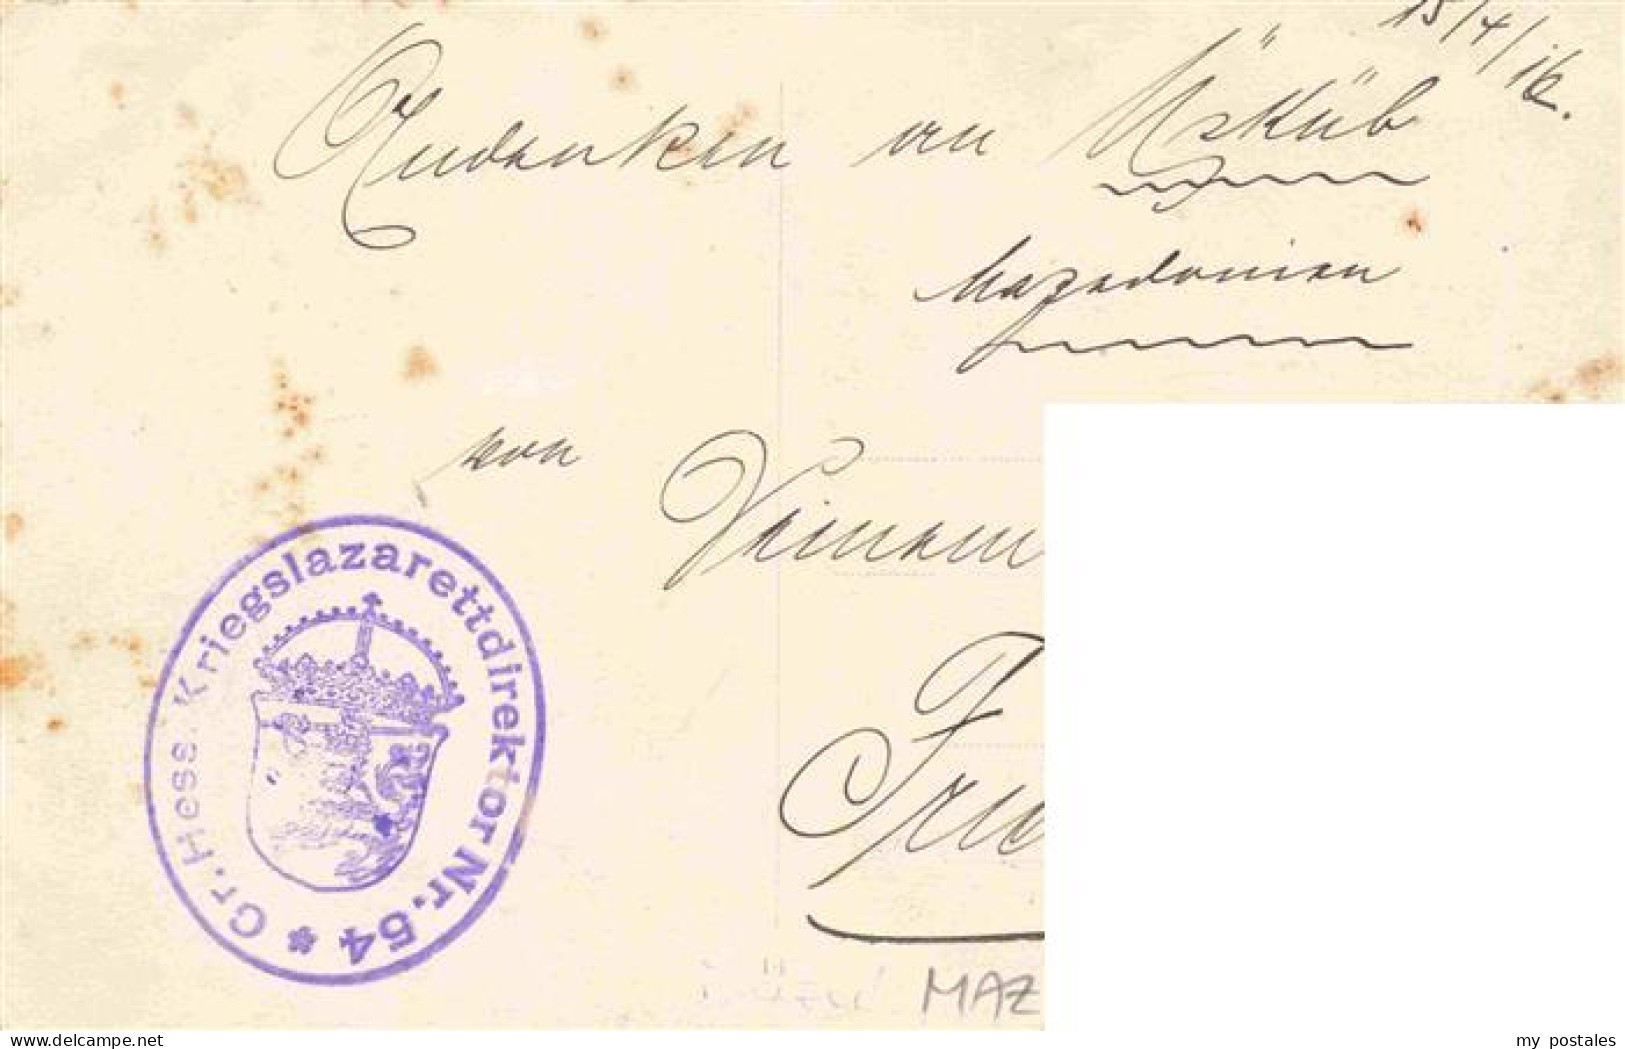 15/4/16.
Andenken an Üsküb
Mazedonien
von
Gr. Hess. Kriegslazarettdirektor Nr. 54 *
MAZ
my postales
www.delcampe.net